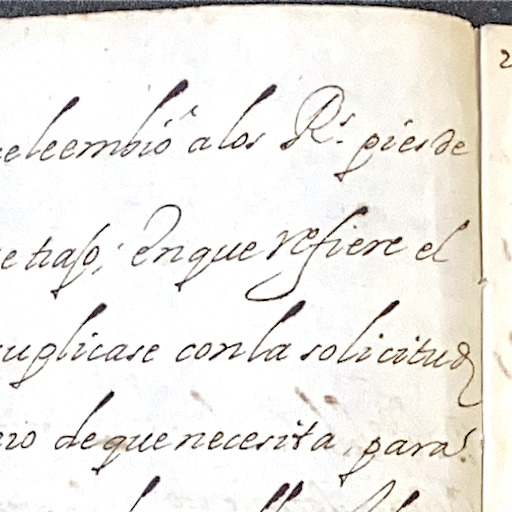 eleembió a los Rs. pies de
etraso; En que refiere el
uplicase con la solicitud
no de que necesita, para
2